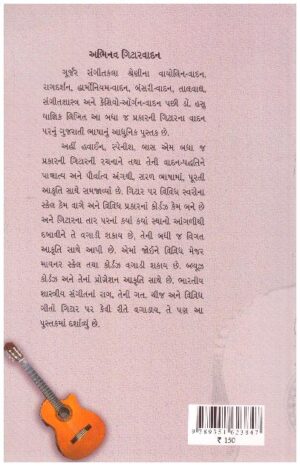 અભિનવ ગિટારવાદન
ગૂર્જર સંગીતકલા શ્રેણીના વાયોલિન-વાદન,
રાગદર્શન, હાર્મોનિયમ-વાદન, બંસરી-વાદન, તાલવાદ્ય,
સંગીતશાસ્ત્ર અને કેસિયો-ઑર્ગન-વાદન પછી ડૉ. હસુ
યાજ્ઞિક લિખિત આ બધા જ પ્રકારની ગિટારના વાદન
પરનું ગુજરાતી ભાષાનું આધુનિક પુસ્તક છે.
અહીં હવાઈન, સ્પેનીશ, બાસ એમ બધા જ
પ્રકારની ગિટારની રચનાને તથા તેની વાદન-પદ્ધતિને
પાશ્ચાત્ય અને પૌર્વાત્ય અંગથી, સરળ ભાષામાં, પૂરતી
આકૃતિ સાથે સમજાવ્યાં છે. ગિટાર પર વિવિધ સ્વરોના
સ્કેલ કેમ વાગે અને વિવિધ પ્રકારનાં કોર્ડઝ કેમ બને છે
અને ગિટારના તાર પરનાં ક્યાં ક્યાં સ્થાનો આંગળીથી
દબાવીને તે વગાડી શકાય છે, તેની બધી જ વિગત
આકૃતિ સાથે આપી છે. એમાં જોઈને વિવિધ મેજર
માયનર સ્કેલ તથા કોર્ડઝ વગાડી શકાય છે. બ્લૂઝ
કોર્ડઝ અને તેનાં પ્રોગ્રેશન આકૃતિ સાથે છે. ભારતીય
શાસ્ત્રીય સંગીતનાં રાગ, તેની ગત, ચીજ અને વિવિધ
ગીતો ગિટાર પર કેવી રીતે વગાડાય, તે પણ આ
પુસ્તકમાં દર્શાવ્યું છે.
9 789351 623847
₹ 150